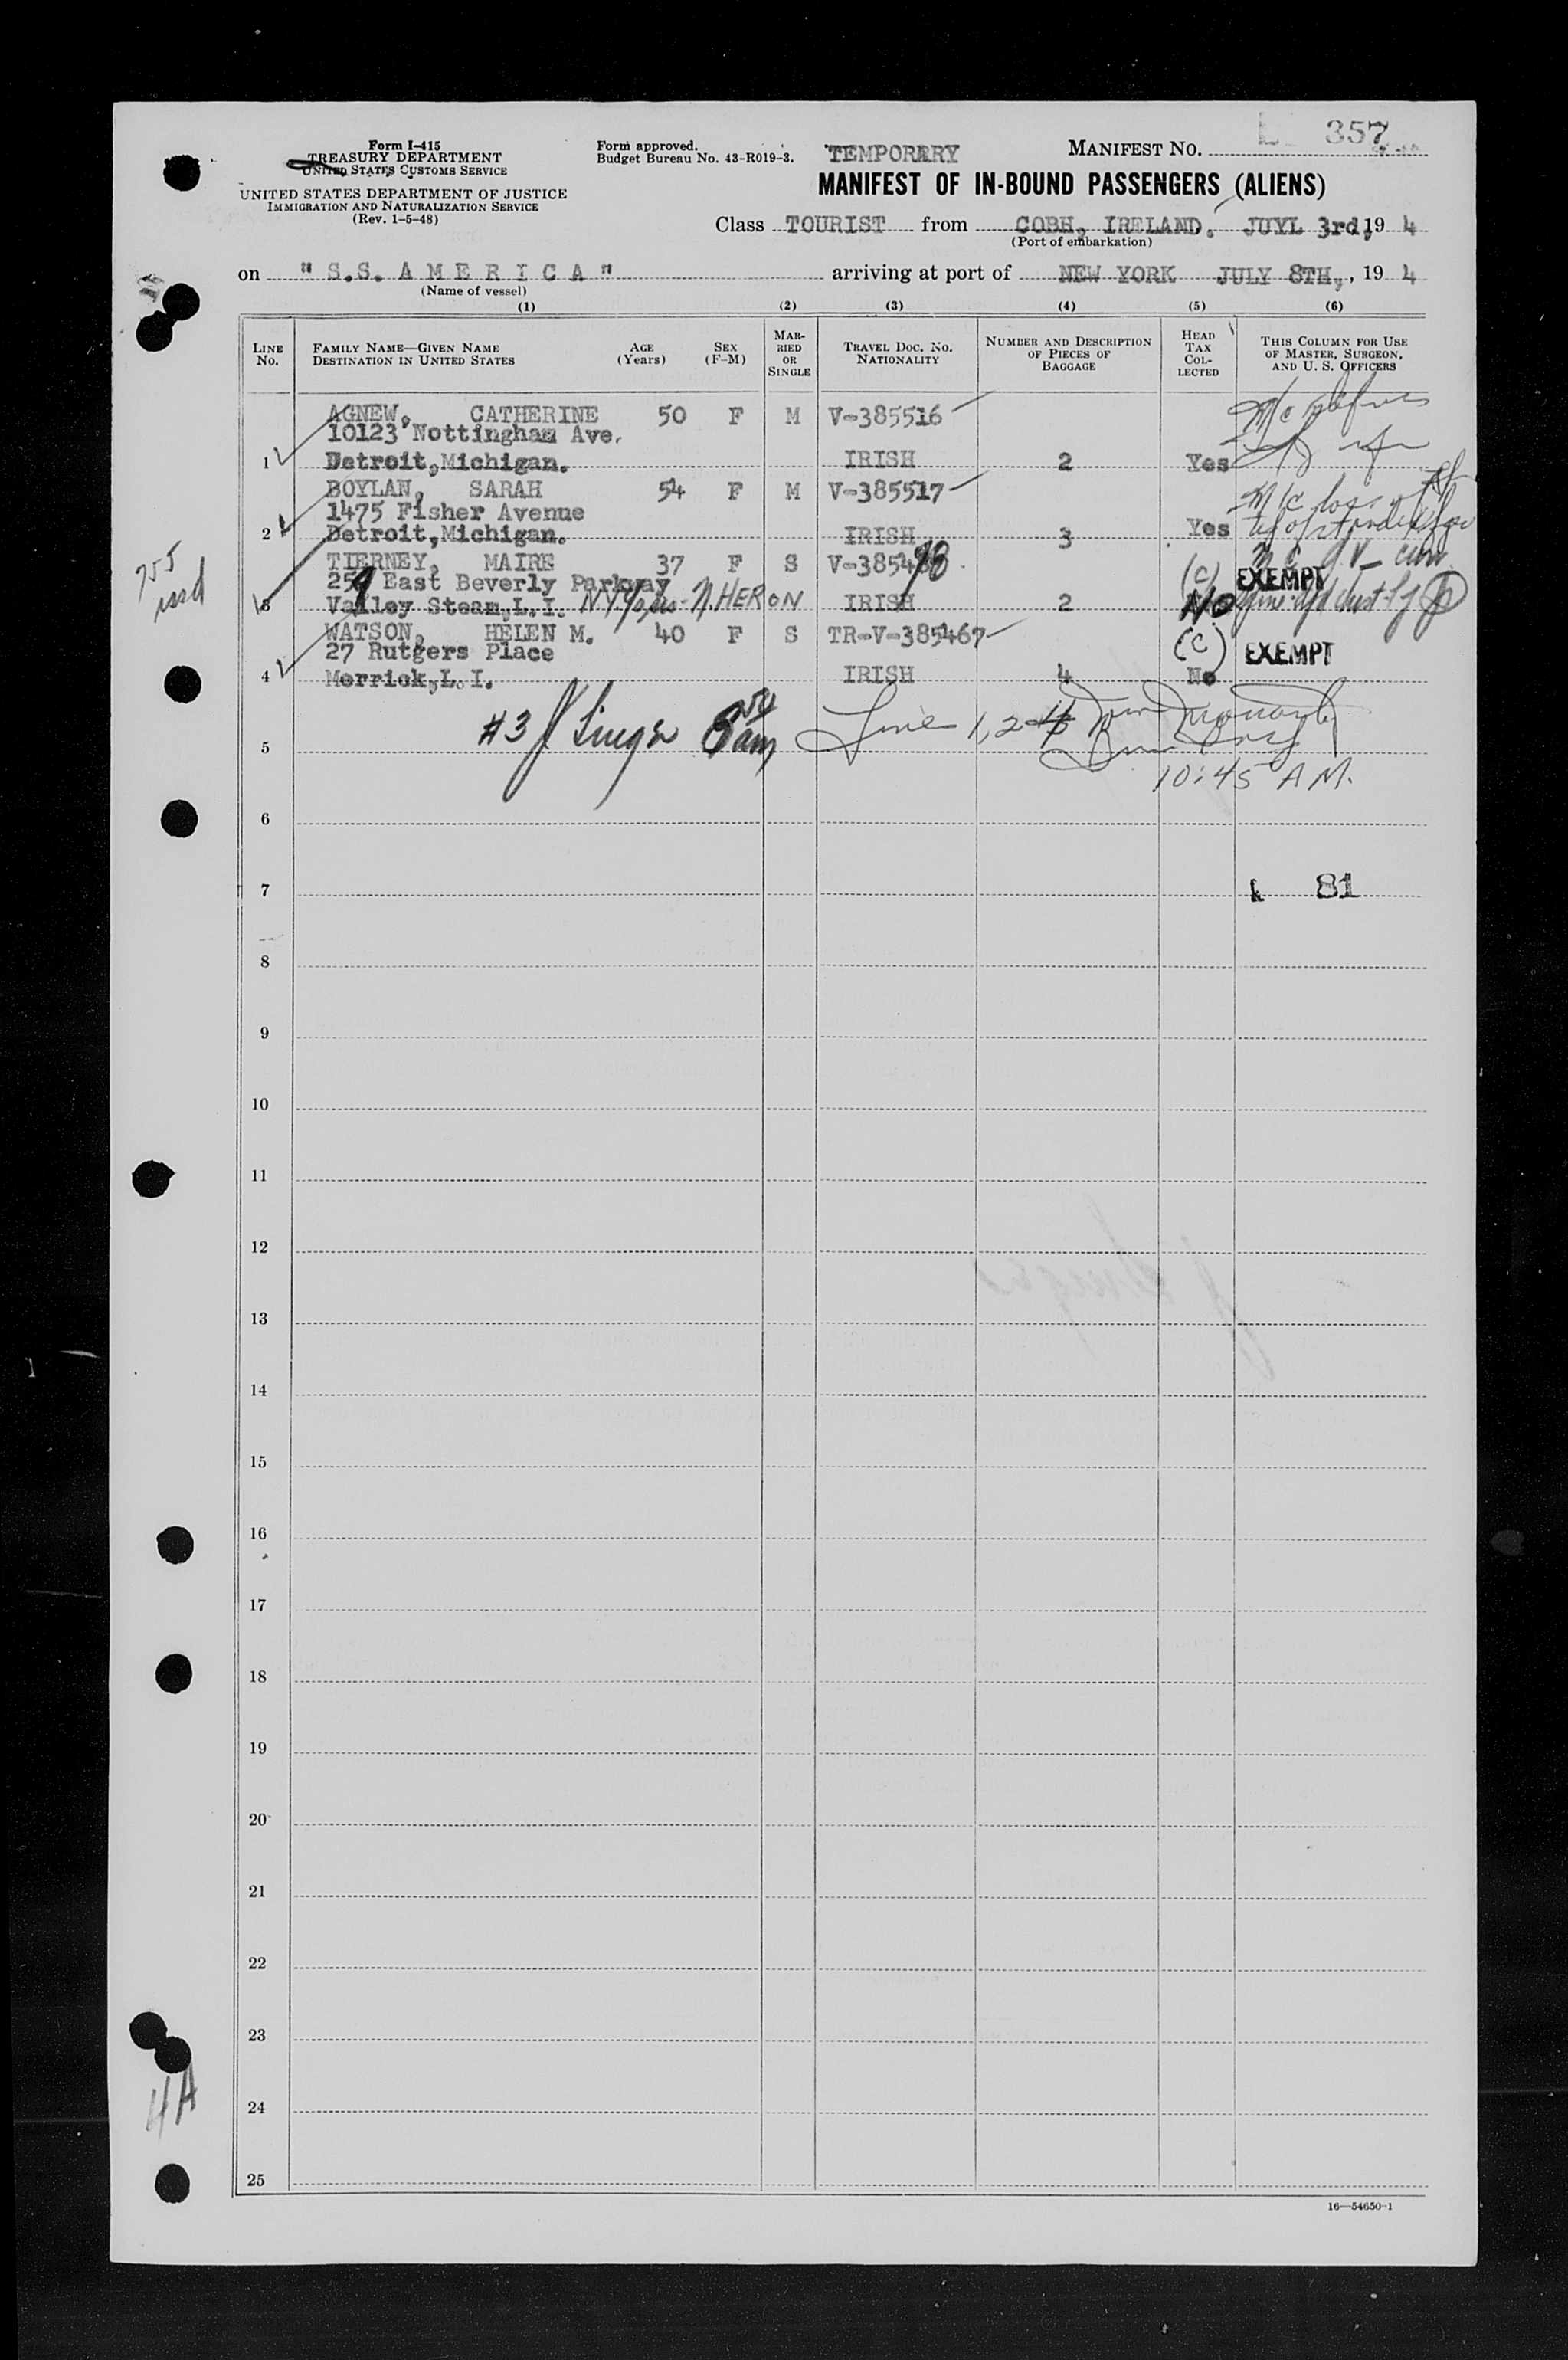 L 357
Form I-415
TREASURY DEPARTMENT
UNITED STATES CUSTOMS SERVICE
UNITED STATES DEPARTMENT OF JUSTICE
IMMIGRATION AND NATURALIZATION SERVICE
(Rev. 1-5-48)
Form approved.
Budget Bureau No. 43-R019-3.
TEMPORARY
MANIFEST NO.
MANIFEST OF IN-BOUND PASSENGERS (ALIENS)
Class TOURIST from COBH, IRELAND. JUYL 3rd, 19 4
(Port of embarkation)
on "S.S. AMERICA" arriving at port of NEW YORK JULY 8TH, , 19 4
(Name of vessel)
(1) (2) (3) (4) (5) (6)
LINE No.
FAMILY NAME—GIVEN NAME
DESTINATION IN UNITED STATES
AGE (Years)
SEX (F-M)
MARRIED OR SINGLE
TRAVEL DOC. NO. NATIONALITY
NUMBER AND DESCRIPTION OF PIECES OF BAGGAGE
HEAD TAX COLLECTED
THIS COLUMN FOR USE OF MASTER, SURGEON, AND U. S. OFFICERS
AGNEW, CATHERINE 50 F M V-385516
10123 Nottingham Ave.
1 Detroit, Michigan. IRISH 2 Yes
BOYLAN, SARAH 54 F M V-385517
1475 Fisher Avenue
2 Detroit, Michigan. IRISH 3 Yes
TIERNEY, MAIRE 37 F S V-385498 (C) EXEMPT
259 East Beverly Parkway
3 Valley Steam, L.I. N.Y. N. HERON IRISH 2 NO
WATSON, HELEN M. 40 F S TR-V-385467 (C) EXEMPT
27 Rutgers Place
4 Merrick, L.I. IRISH 4 No
#3 J Singer 8 am Line 1, 2
5
10:45 AM.
6
7 81
8
9
10
11
12
13
14
15
16
17
18
19
20
21
22
23
24
25
4A
16—54650-1